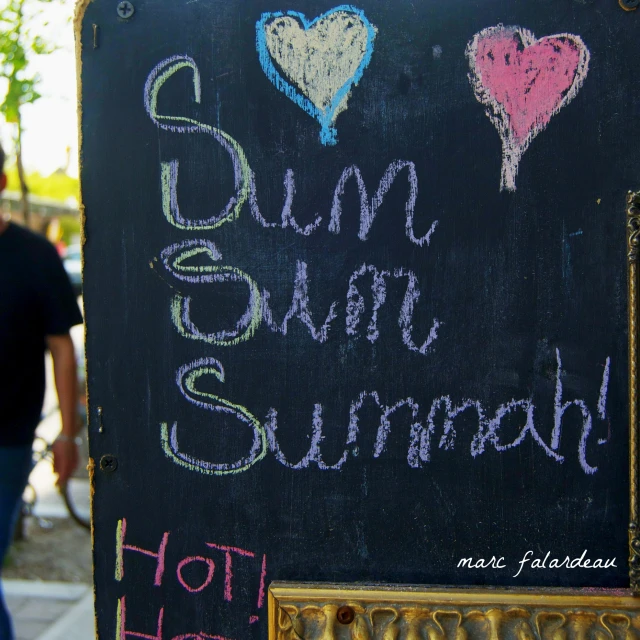 Sum
Sum
Summah!
HOT!
marc falardeau